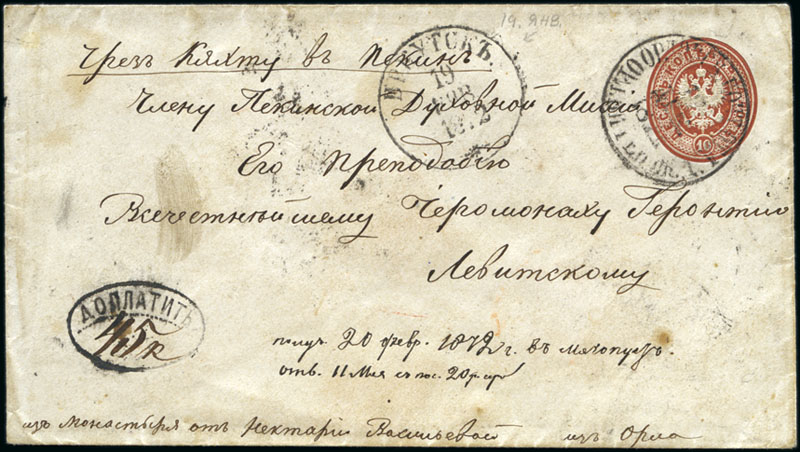 19. ЯНВ.
Чрезъ Кяхту въ Пекинъ
ИРКУТСКЪ
19
ЯНВ
1872
10
Члену Пекинской Духовной Миссіи
Его Преподобію
Всечестнѣйшему Іеромонаху Геронтію
Левитскому
ДОПЛАТИТЬ
45к
получ. 20 февр. 1872 г. въ
отв. 11 Мая 20
изъ Монастыря отъ Нектаріи Васильевой изъ Орла